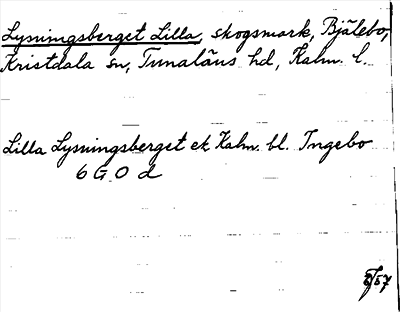 Lysningsberget Lilla, skogsmark, Bjälebo,
Kristdala sn, Tunaläns hd, Kalm. l.
Lilla Lysningsberget ek Kalm. bl. Ingebo
6 G 0 d
57